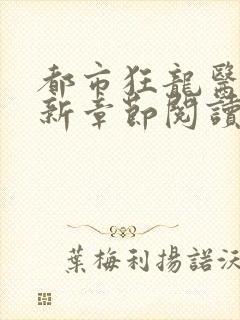 都市狂龍醫
新章節閱讀
葉梅利揚諾沃